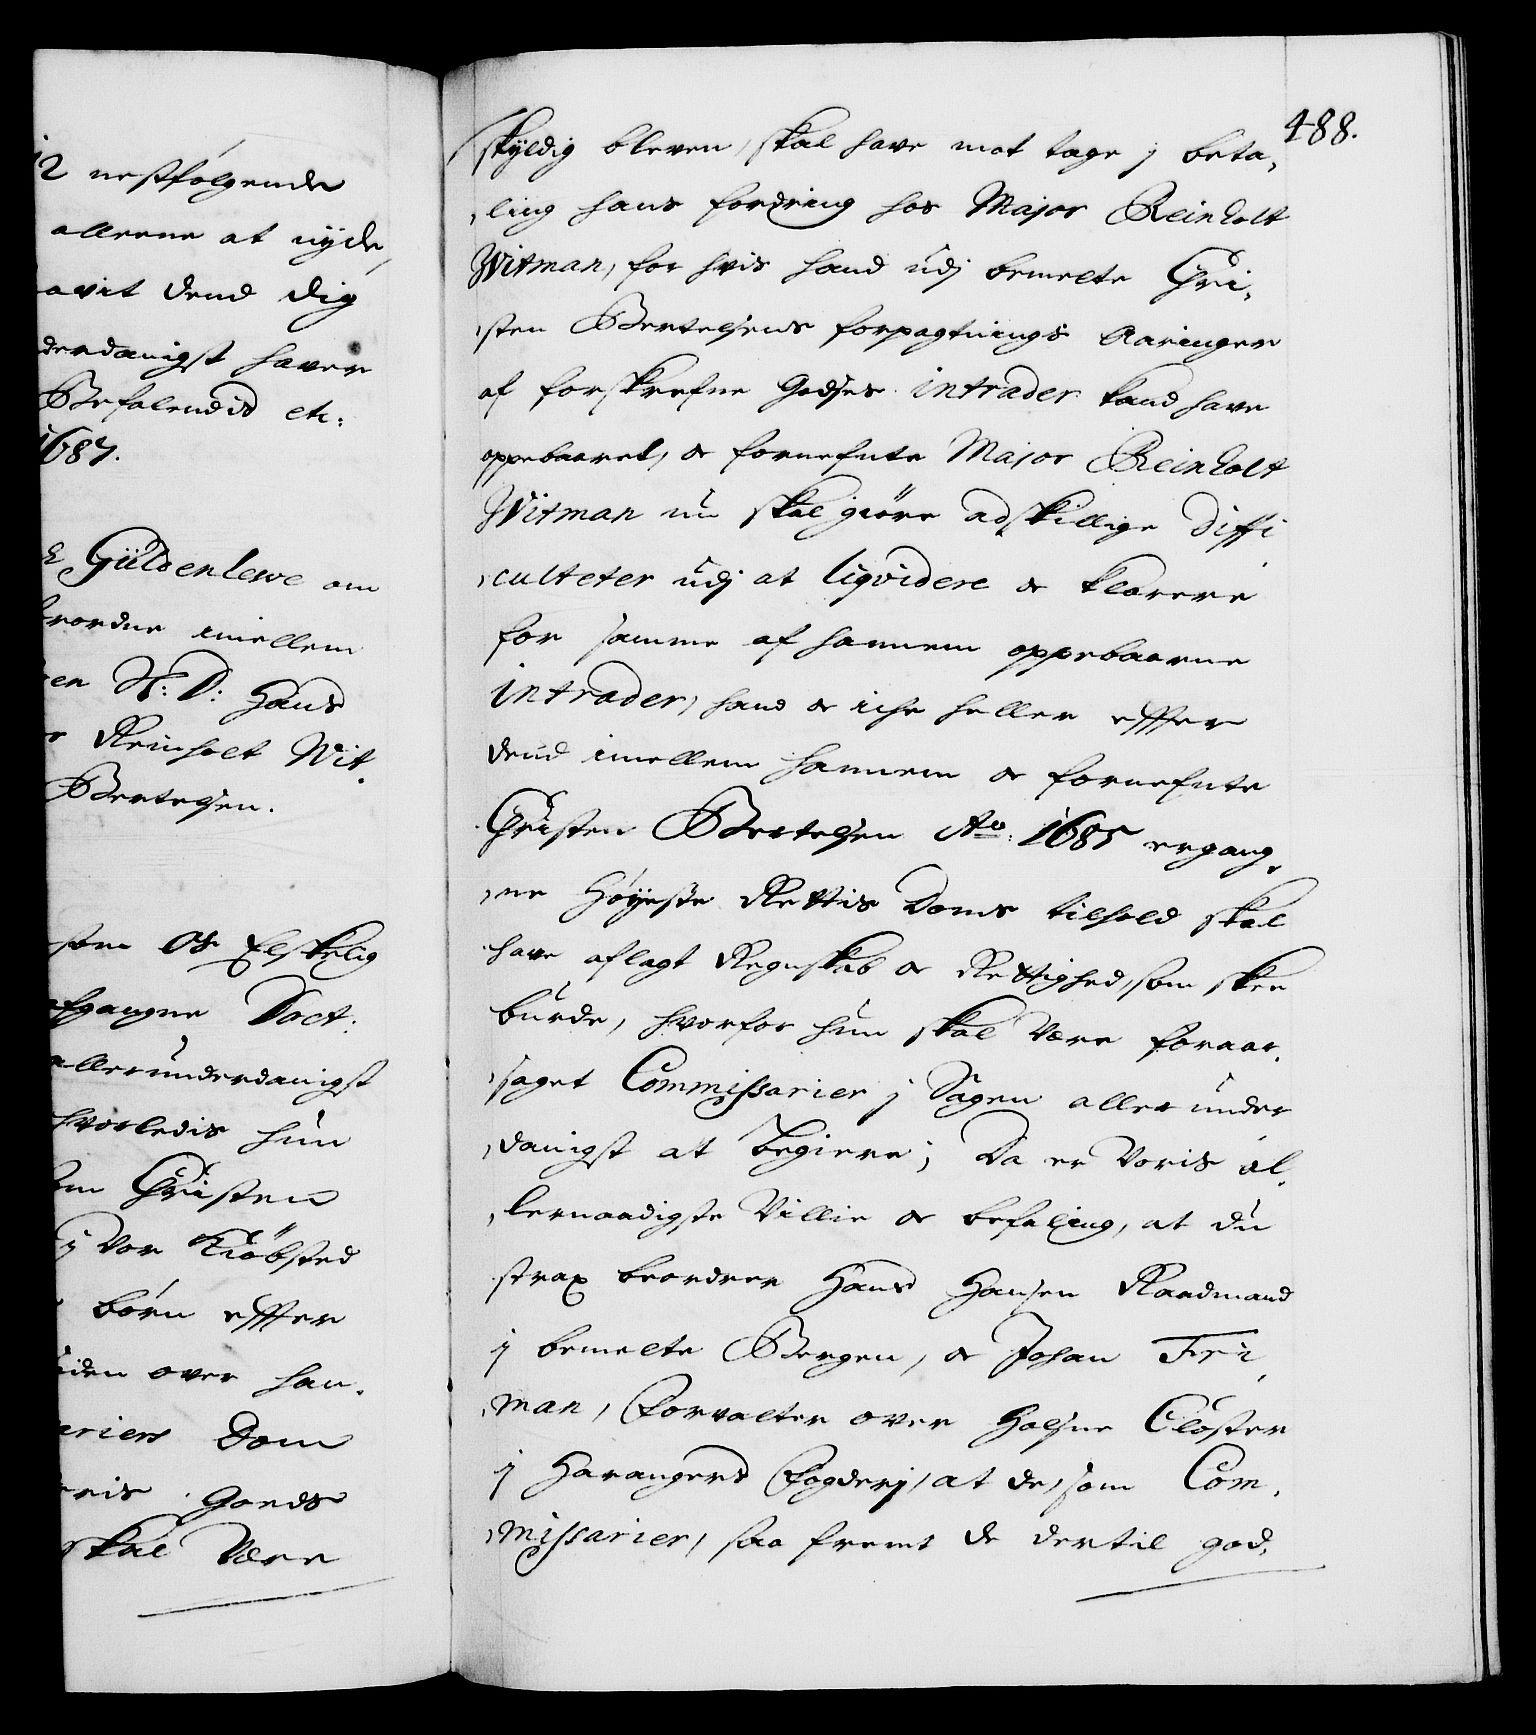 2 nestfølgende
alleene at nyde,
dend Dig
derdanigst haver
Befalendis etc:
1687.
Güldenlewe om
imellem
H: D: Hans
Reinholt Wit,
Bertelsen.
Os Elskelig
Doct:
allerunderdanigst
hvorledis hun
Christen
j Vor Kiøbsted
børn effter
over han,
Dom
Goeds
skal Være
488.
skyldig bleven, skal have mot tage j beta,
,ling hans fordring hos Major Reinholt
Witman, for hvis hand udj bemelte Chri,
,sten Bertelsens forpagtnings Aaringer
af forskrefne Godses intrader kand have
oppebaaret, oc fornefnte Major Reinholt
Witman nu skal giøre adskillige Diffi
,culteter udj at liqvidere oc klarere
for samme af hannem oppebaarne
intrader, hand oc iche heller effter
dend imellem hannem oc fornefnte
Christen Bertelsen Ao: 1685 ergang,
,ne Høyeste Rettis Doms tilhold skal
have aflagt Regnskab oc Rettighed, som skee
burde, hvorfor hun skal Være foraar,
,saget Commissarier j Sagen allerunder
,danigst at begiere; Da er Voris al,
,lernaadigste Villie oc befaling, at du
strax beordrer Hans Hansen Raadmand
j bemelte Bergen, oc Johan Fri,
,man, Forvalter over Halsne Closter
j Harangers Fogderj, at de, som Com,
,missarier, saa fremt de dertil god,